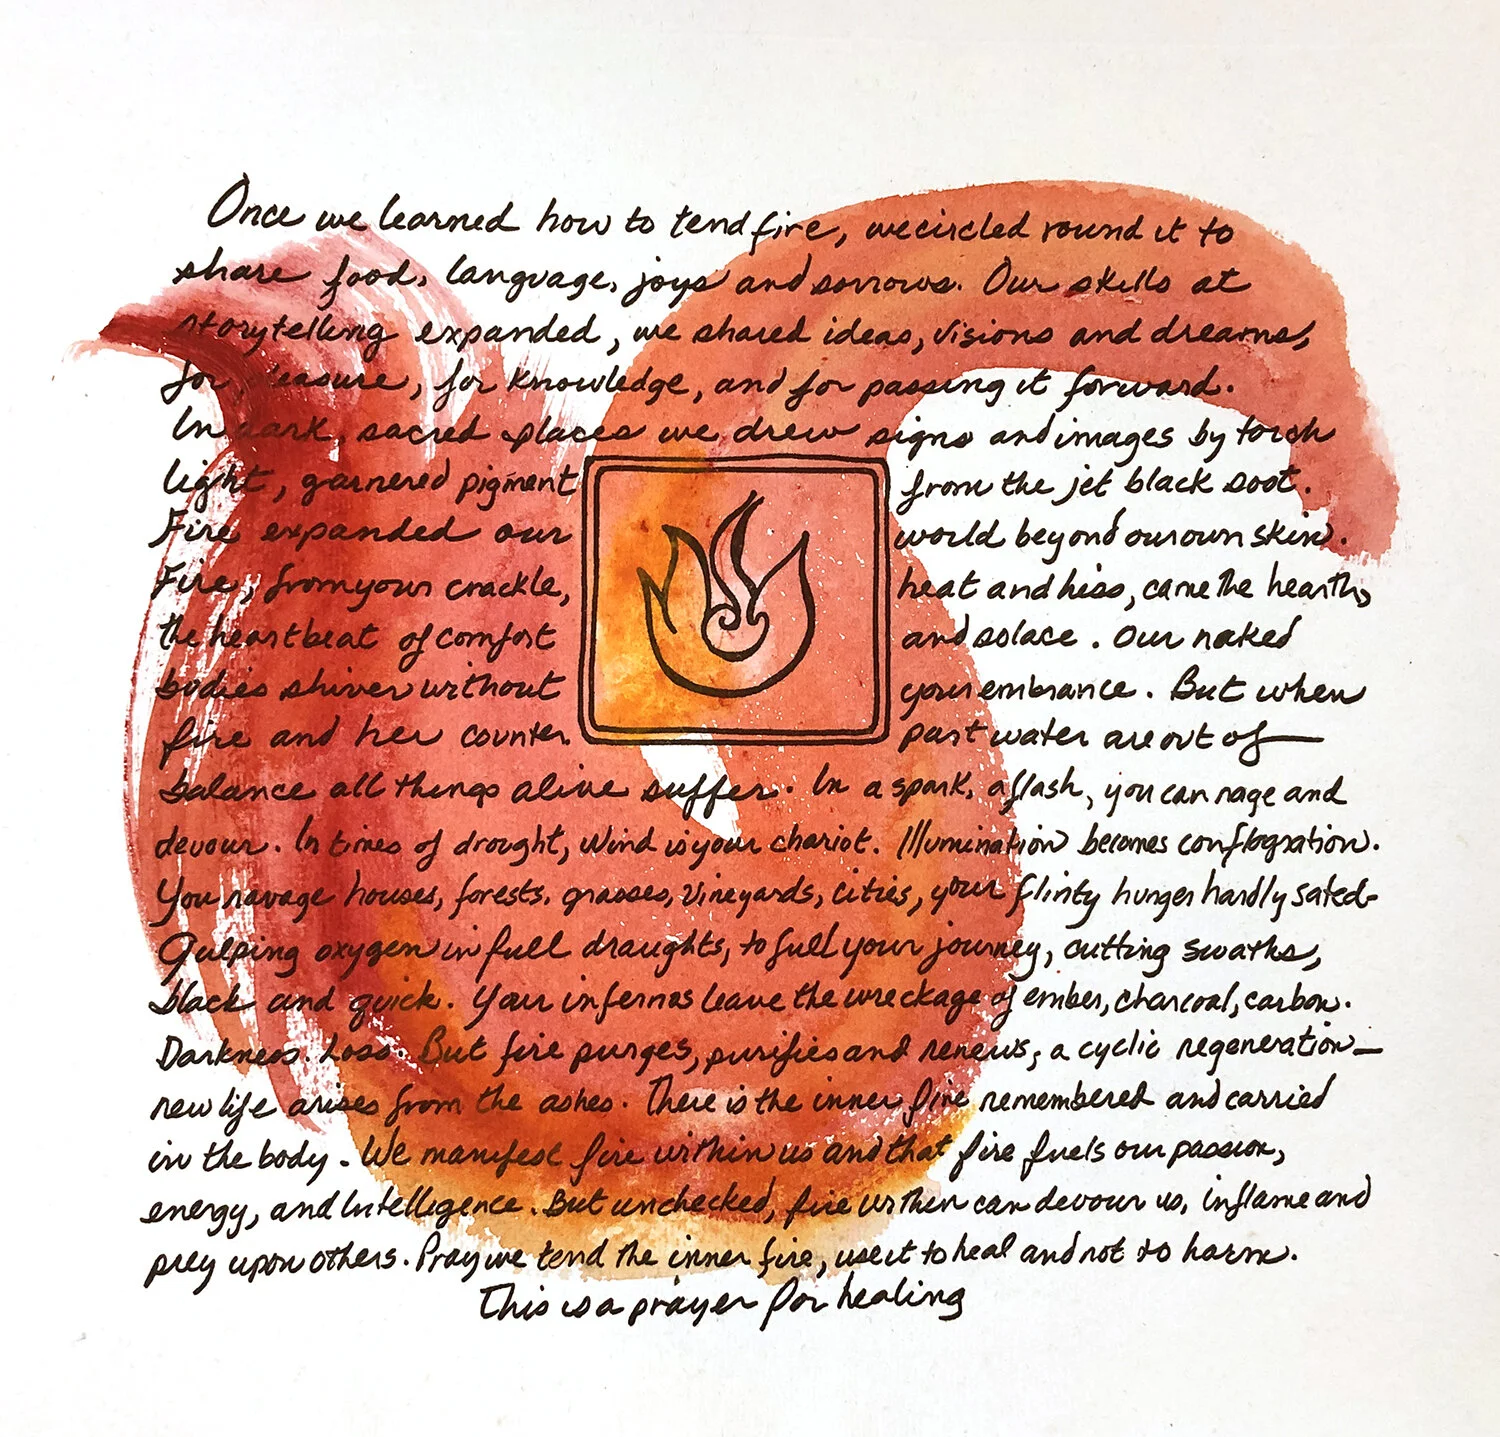 Once we learned how to tend fire, we circled round it to
share food, language, joys and sorrows. Our skills at
storytelling expanded, we shared ideas, visions and dreams,
for pleasure, for knowledge, and for passing it forward.
In dark, sacred places we drew signs and images by torch
light, garnered pigment from the jet black soot.
Fire expanded our world beyond our own skin.
Fire, from your crackle, heat and hiss, came the hearth,
the heartbeat of comfort and solace. Our naked
bodies shiver without your embrance. But when
fire and her counter part water are out of
balance all things alive suffer. In a spark, a flash, you can rage and
devour. In times of drought, wind is your chariot. Illumination becomes conflagration.
You ravage houses, forests, grasses, vineyards, cities, your flinty hunger hardly sated-
Gulping oxygen in full draughts, to full your journey, cutting swaths,
black and quick. Your infernos leave the wreckage of ember, charcoal, carbon.
Darkness. Loss. But fire purges, purifies and renews, a cyclic regeneration—
new life arises from the ashes. There is the inner fire remembered and carried
in the body. We manifest fire within us and that fire fuels our passion,
energy, and Intellegence. But unchecked, fire within can devour us, inflame and
prey upon others. Pray we tend the inner fire, use it to heal and not to harm.
This is a prayer for healing